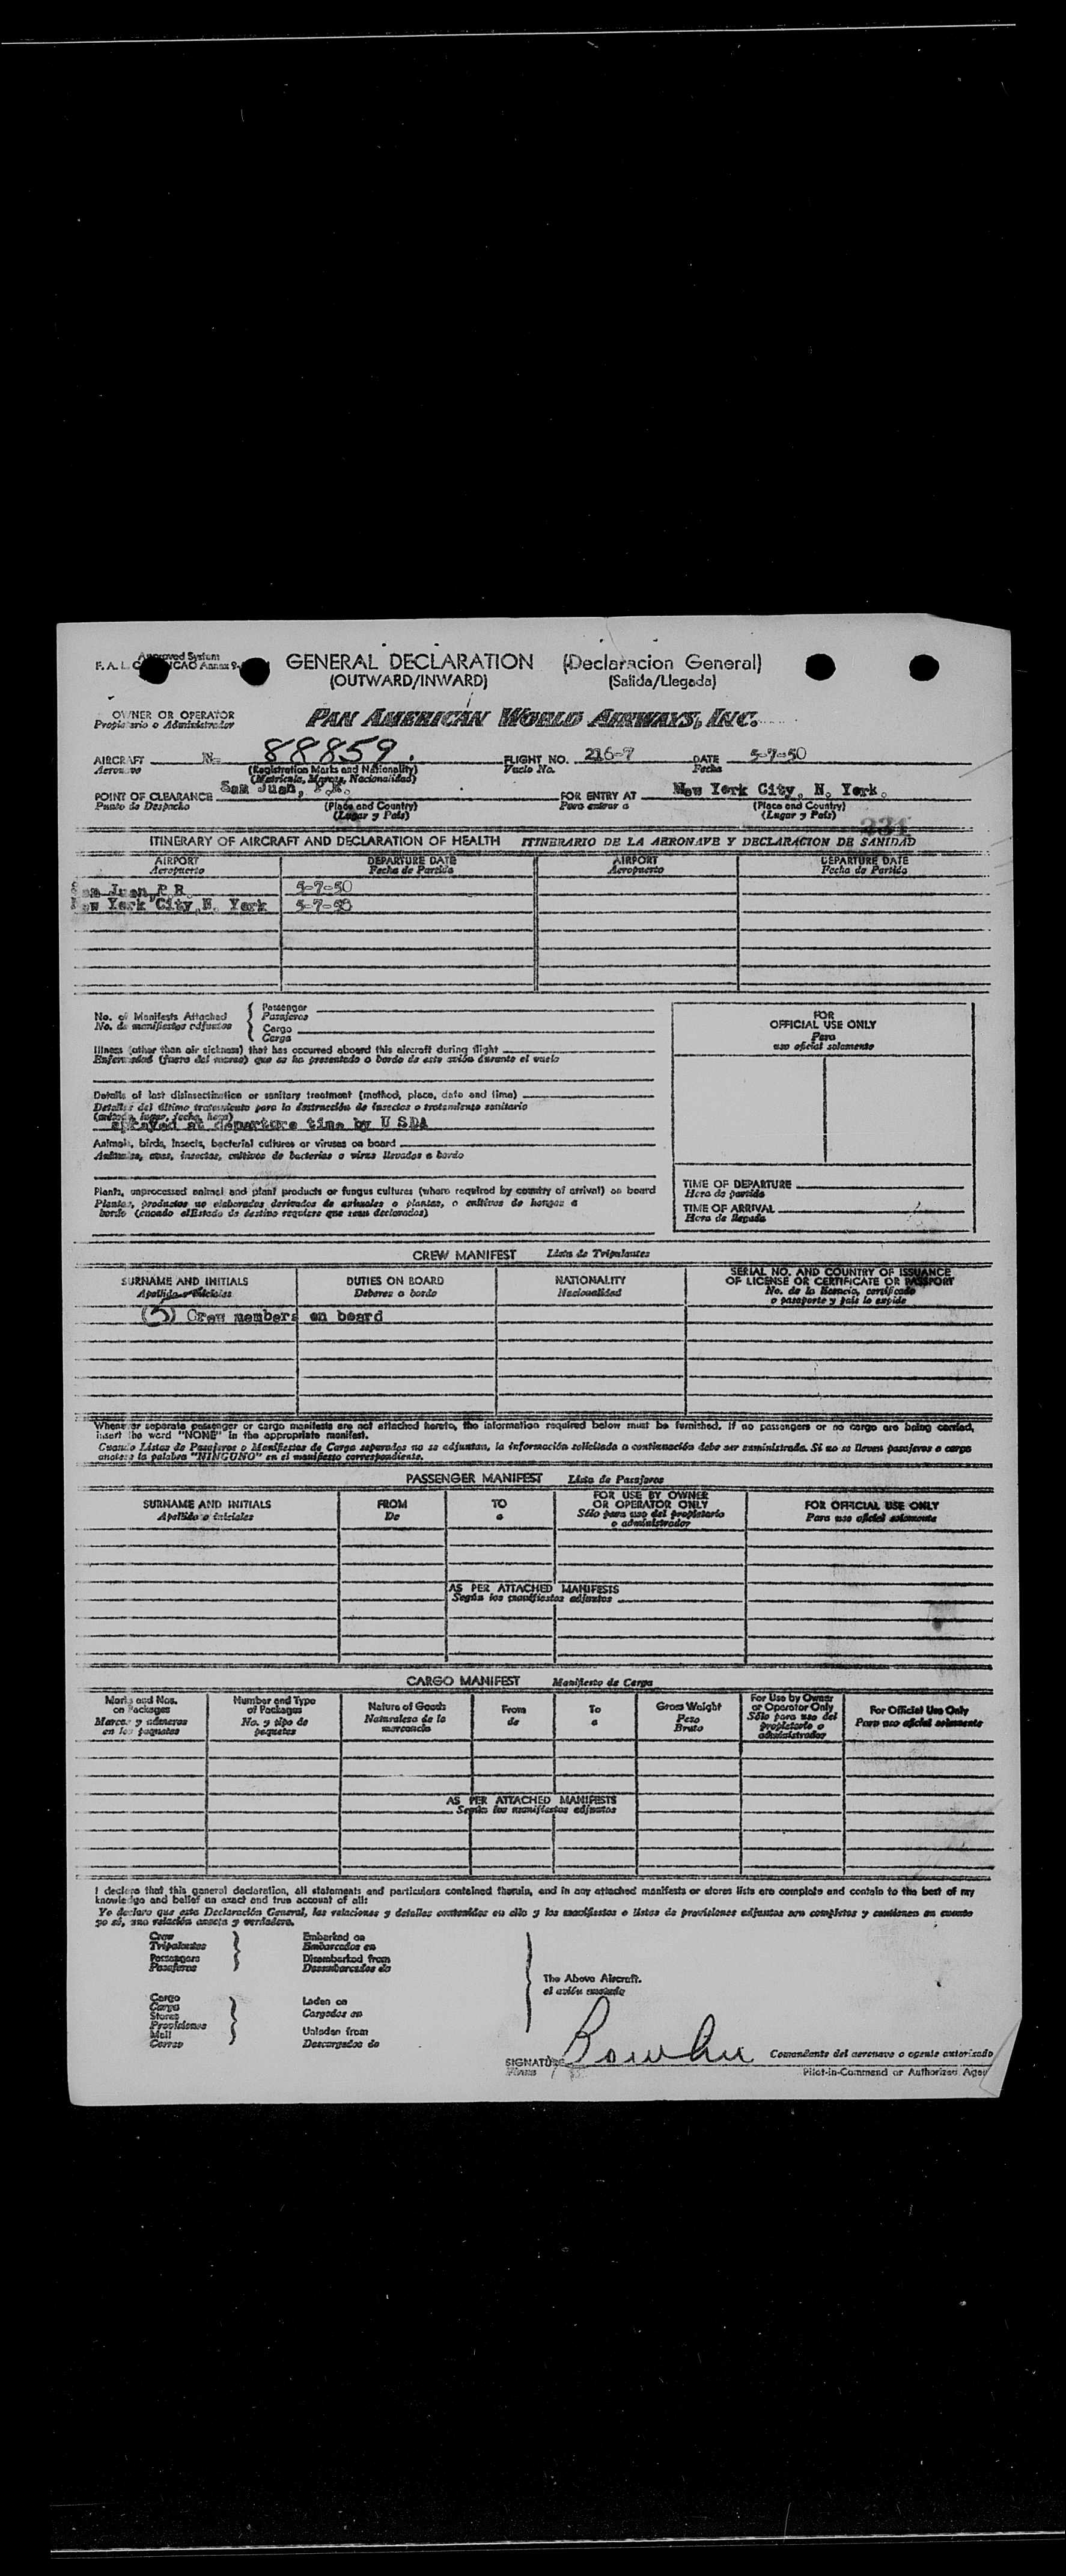 Approved System
F. A. L. ICAO Annex 9
GENERAL DECLARATION (Declaracion General)
(OUTWARD/INWARD) (Salida/Llegada)
OWNER OR OPERATOR
Propietario o Administrador
PAN AMERICAN WORLD AIRWAYS, INC.
AIRCRAFT N- 88859. FLIGHT NO. 216-7 DATE 5-7-50
Aeronave (Registration Marks and Nationality) Vuelo No. Fecha
(Matricula, Marcas, Nacionalidad)
POINT OF CLEARANCE San Juan, P.R. FOR ENTRY AT New York City, N. York.
Punto de Despacho (Place and Country) Para entrar a (Place and Country)
(Lugar y País) (Lugar y País)
231
ITINERARY OF AIRCRAFT AND DECLARATION OF HEALTH ITINERARIO DE LA AERONAVE Y DECLARACION DE SANIDAD
AIRPORT DEPARTURE DATE AIRPORT DEPARTURE DATE
Aeropuerto Fecha de Partida Aeropuerto Fecha de Partida
San Juan P R 5-7-50
New York City, N. York 5-7-50
No. of Manifests Attached
No. de manifiestos adjuntos
Passenger
Pasajeros
Cargo
Carga
FOR
OFFICIAL USE ONLY
Para
uso oficial solamente
Illness (other than air sickness) that has occurred aboard this aircraft during flight
Enfermedad (fuera del mareo) que se ha presentado a bordo de este avión durante el vuelo
Details of last disinsectization or sanitary treatment (method, place, date and time)
Detalles del último tratamiento para la destrucción de insectos o tratamiento sanitario
(método, lugar, fecha, hora)
sprayed at departure time by U SDA
Animals, birds, insects, bacterial cultures or viruses on board
Animales, aves, insectos, cultivos de bacterias o virus llevados a bordo
Plants, unprocessed animal and plant products or fungus cultures (where required by country of arrival) on board
Plantas, productos no elaborados derivados de animales o plantas, o cultivos de hongos a
bordo (cuando el Estado de destino requiere que sean declarados)
TIME OF DEPARTURE
Hora de partida
TIME OF ARRIVAL
Hora de llegada
CREW MANIFEST Lista de Tripulantes
SURNAME AND INITIALS DUTIES ON BOARD NATIONALITY SERIAL NO. AND COUNTRY OF ISSUANCE
OF LICENSE OR CERTIFICATE OR PASSPORT
Apellido e iniciales Deberes a bordo Nacionalidad No. de la licencia, certificado
o pasaporte y país lo expide
(5) Crew members on board
Whenever separate passenger or cargo manifests are not attached hereto, the information required below must be furnished. If no passengers or no cargo are being carried,
insert the word "NONE" in the appropriate manifest.
Cuando Listas de Pasajeros o Manifiestos de Carga separados no se adjuntan, la información solicitada a continuación debe ser suministrada. Si no se llevan pasajeros o carga
anótese la palabra "NINGUNO" en el manifiesto correspondiente.
PASSENGER MANIFEST Lista de Pasajeros
SURNAME AND INITIALS FROM TO FOR USE BY OWNER
OR OPERATOR ONLY FOR OFFICIAL USE ONLY
Apellido o iniciales De a Sólo para uso del propietario
o administrador Para uso oficial solamente
AS PER ATTACHED MANIFESTS
Según los manifiestos adjuntos
CARGO MANIFEST Manifiesto de Carga
Marks and Nos.
on Packages
Marcas y números
en los paquetes
Number and Type
of Packages
No. y tipo de
paquetes
Nature of Goods
Naturaleza de la
mercancía
From
de
To
a
Gross Weight
Peso
Bruto
For Use by Owner
or Operator Only
Sólo para uso del
propietario o
administrador
For Official Use Only
Para uso oficial solamente
AS PER ATTACHED MANIFESTS
Según los manifiestos adjuntos
I declare that this general declaration, all statements and particulars contained therein, and in any attached manifests or stores lists are complete and contain to the best of my
knowledge and belief an exact and true account of all:
Yo declaro que esta Declaración General, las relaciones y detalles contenidos en ella y los manifiestos o listas de provisiones adjuntos son completos y contienen en cuanto
yo sé, una relación exacta y verdadera.
Crew
Tripulantes
Passengers
Pasajeros
Embarked on
Embarcados en
Disembarked from
Desembarcados de
The Above Aircraft.
el avión
Cargo
Carga
Stores
Provisiones
Mail
Correo
Laden on
Cargados en
Unladen from
Descargados de
SIGNATURE Comandante del aeronave o agente autorizado
Firma Pilot-in-Command or Authorized Agent